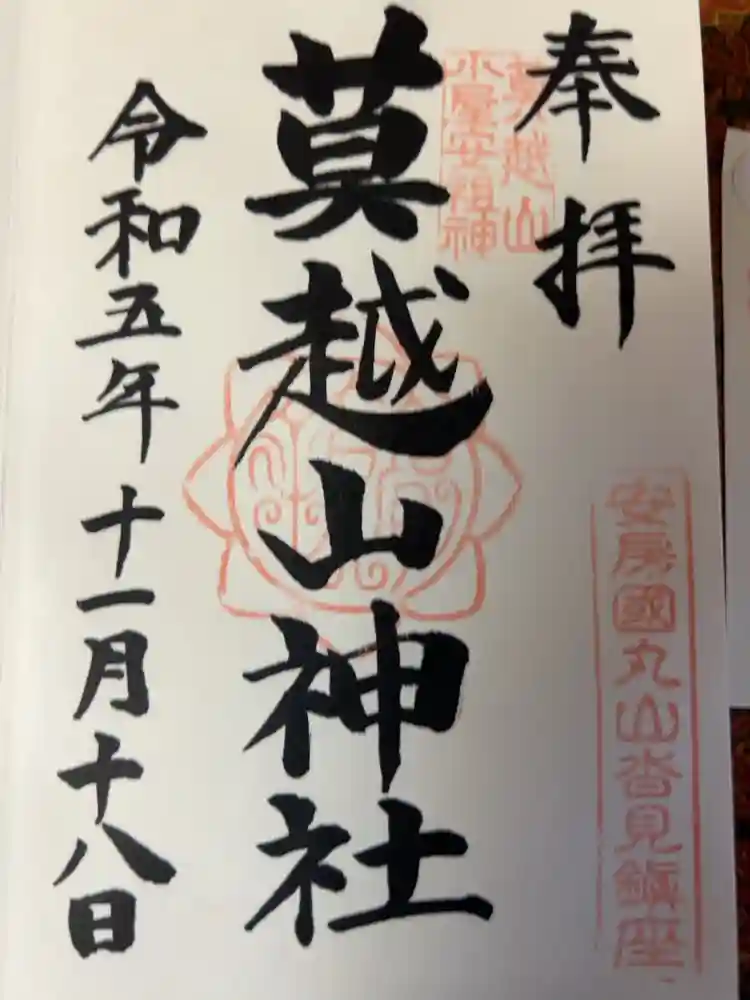 奉拝
莫越山
小屋安祖神
安房國丸山沓見鎭座
莫越山神社
令和五年十一月十八日